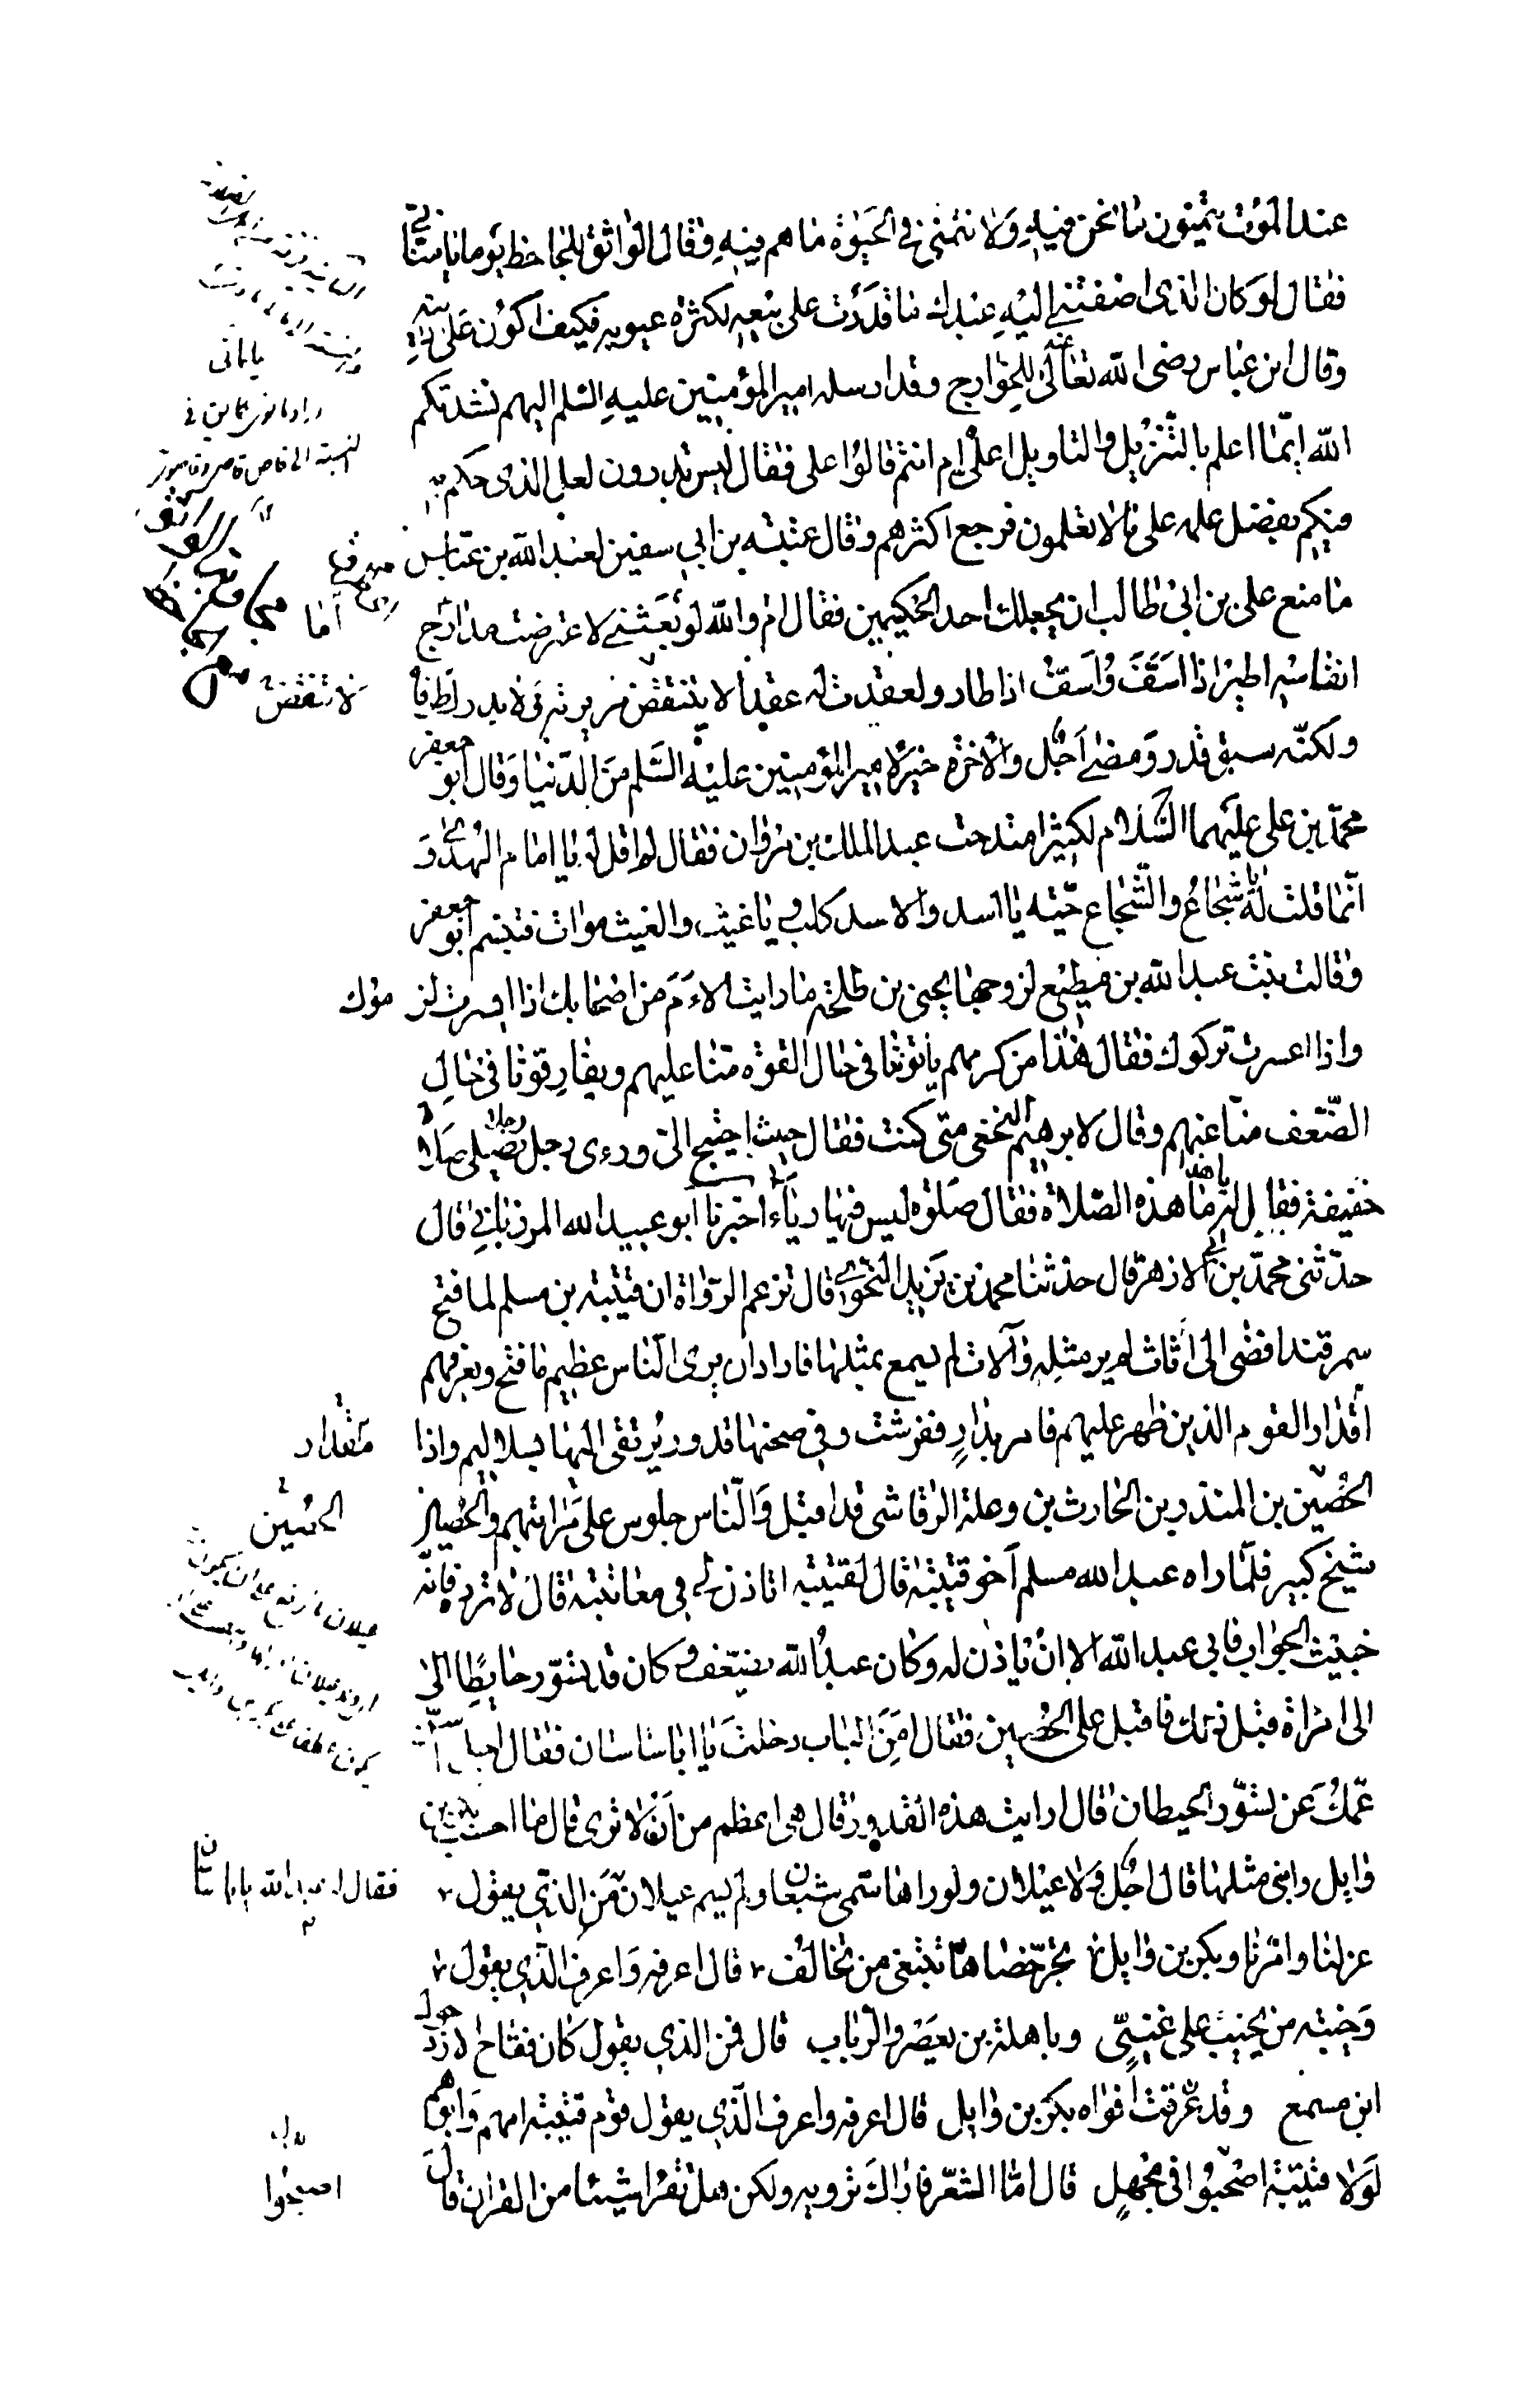 عند الموت يتمنون ما نحن فيه ولا نتمنى في الحيوة ما هم فيه وقال الواثق للجاحظ يوما يا ماني
فقال لو كان الذي اضفتني اليه عبدك ما قدرت على بيعه لكثرة عيوبه فكيف اكون على دينه
وقال ابن عباس رضي الله تعالى عنه للخوارج وقد ارسله امير المؤمنين عليه السلم اليهم نشدتكم
الله ايما اعلم بالتنزيل والتاويل اعلي ام انتم قالوا علي فقال ليس تدرون لعل الذي حكم به
فيكم بفضل علمه على ما لا تعلمون فرجع اكثرهم وقال عتبة بن ابي سفين لعبد الله بن عباس
ما منع علي بن ابي طالب ان يجعلك احد الحكمين فقال ام والله لو بعثني لاعترضت مدارج
انفاسه اطير اذا اسف واسف اذا طار ولعقدت له عقدا لا ينتقض مريرته ولا يدرك طرفاه
ولكنه سبق قدر ومضى اجل والاخرة خير لامير المؤمنين عليه السلم من الدنيا وقال ابو جعفر
محمد بن علي عليهما السلام لكثير امتدحت عبد الملك بن مروان فقال لم اقل له يا امام الهدى و
انما قلت له يا شجاع والشجاع حية يا اسد والاسد كلب ويا غيث والغيث موات فتبسم ابو جعفر
وقالت بنت عبد الله بن مطيع لزوجها يحيى بن طلحة ما رايت الاءم من اصحابك اذا ايسرت لزموك
واذا اعسرت تركوك فقال هذا من كرمهم يأتوننا في حال القوة منا عليهم ويفارقوننا في حال
الضعف منا عنهم وقال لابرهيم النخعي متى كنت فقال حيث احتيج الي ورءى رجل رجلا يصلي صلاة
خفيفة فقال له يا هذا ما هذه الصلاة فقال صلوة ليس فيها رياء اخبرنا ابو عبيد الله المرزباني قال
حدثني محمد بن ابي الازهر قال حدثنا محمد بن يزيد النحوي قال تزعم الرواة ان قتيبة بن مسلم لما فتح
سمرقند افضى الى اثاث لم ير مثله وآلات لم يسمع بمثلها فاراد ان يري الناس عظيم ما فتح ويعرفهم
اقدار القوم الذين ظهر عليهم فامر بدار ففرشت وفي صحنها قدور يرتقى اليها بسلاليم واذا
الحضين بن المنذر بن الحارث بن وعلة الرقاشي قد اقبل والناس جلوس على مراتبهم والحضين
شيخ كبير فلما راه عبد الله مسلم اخو قتيبة قال لقتيبة اتاذن لي في معاتبته قال لا ترده فانه
خبيث الجواب فابى عبد الله الا ان ياذن له وكان عبد الله يضعف وكان قد تسور حايطا الى
الى امراة قبل ذلك فاقبل على الحضين فقال امن الباب دخلت يا ابا ساسان فقال اجل اسن
عمك عن تسور الحيطان قال ارايت هذه القدور قال هي اعظم من ان لا ترى قال ما احسب بكر بن
وايل راى مثلها قال اجل ولا عيلان ولو راها سمي شبعان ولم يسم عيلان من الذي يقول
عزلنا وامرنا وبكر بن وايل تجر خصاها تبتغي من تحالف قال اعرفه واعرف الذي يقول
وخيبة من يخيب على غني وباهلة بن يعصر والرباب قال فمن الذي يقول كان فقاح الازد حول
ابن مسمع وقد عرقت افواه بكر بن وايل قال اعرفه واعرف الذي يقول قوم قتيبة امهم وابوهم
لولا قتيبة اصبحوا في مجهل قال اما الشعر فاراك ترويه ولكن هل تقرا شيئا من القران قال
يا ماني
اما
لا تنقض
مقدار
الحسين
فقال له عبد الله يا با ساسان
اصبحوا